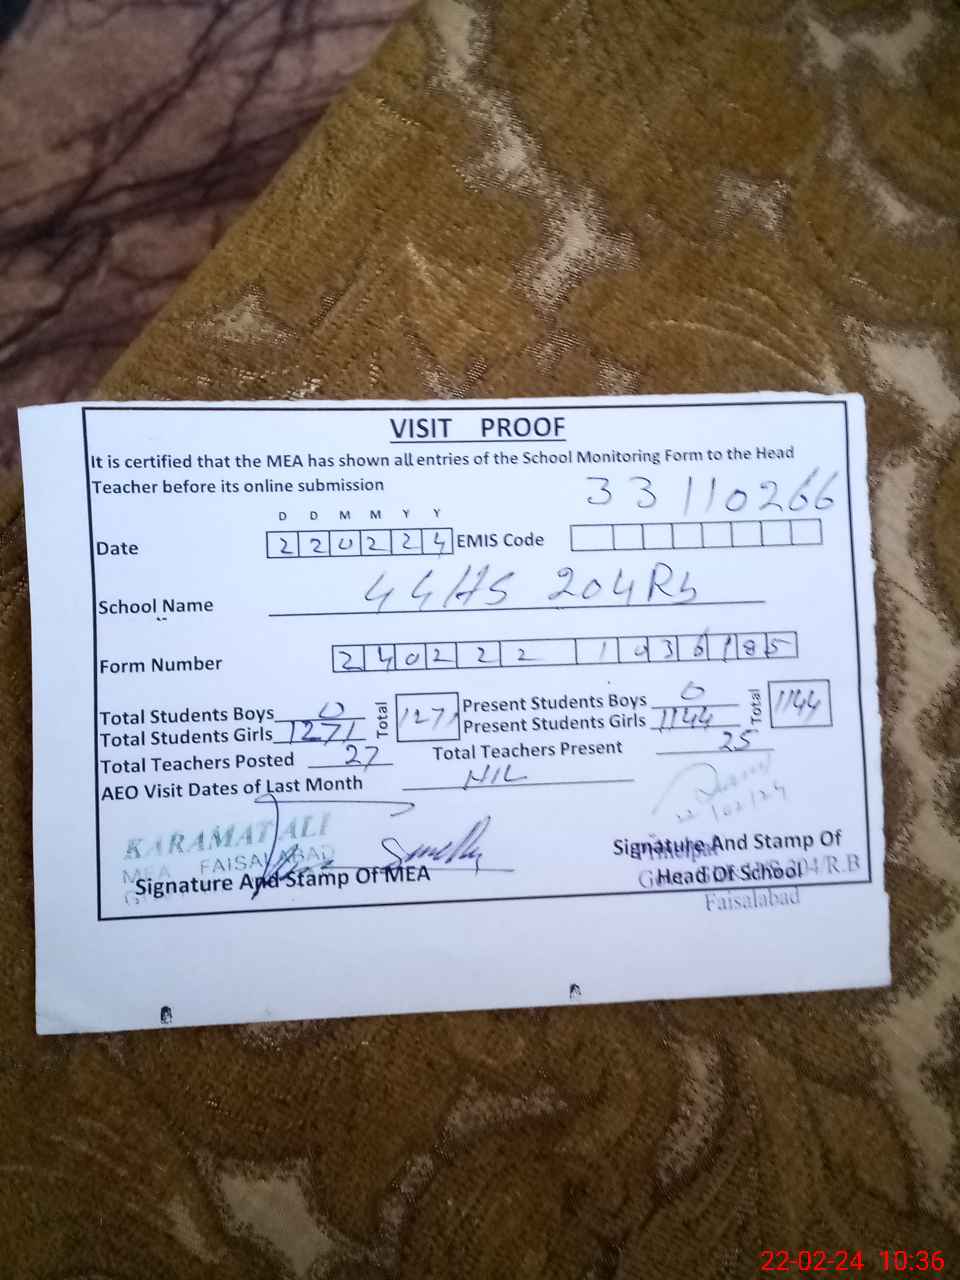 VISIT PROOF
It is certified that the MEA has shown all entries of the School Monitoring Form to the Head
Teacher before its online submission
33110266
D D M M Y Y
Date 220224 EMIS Code
School Name 44HS 204Rb
Form Number 240222 1036185
Total Students Boys 0 Total 1271 Present Students Boys 0 Total 1144
Total Students Girls 1271 Present Students Girls 1144
Total Teachers Posted 27 Total Teachers Present 25
AEO Visit Dates of Last Month NIL
22/02/24
KARAMAT ALI
MEA FAISALABAD
Signature And Stamp Of MEA
Signature And Stamp Of
Principal
Head Of School
204/R.B
Faisalabad
22-02-24 10:36